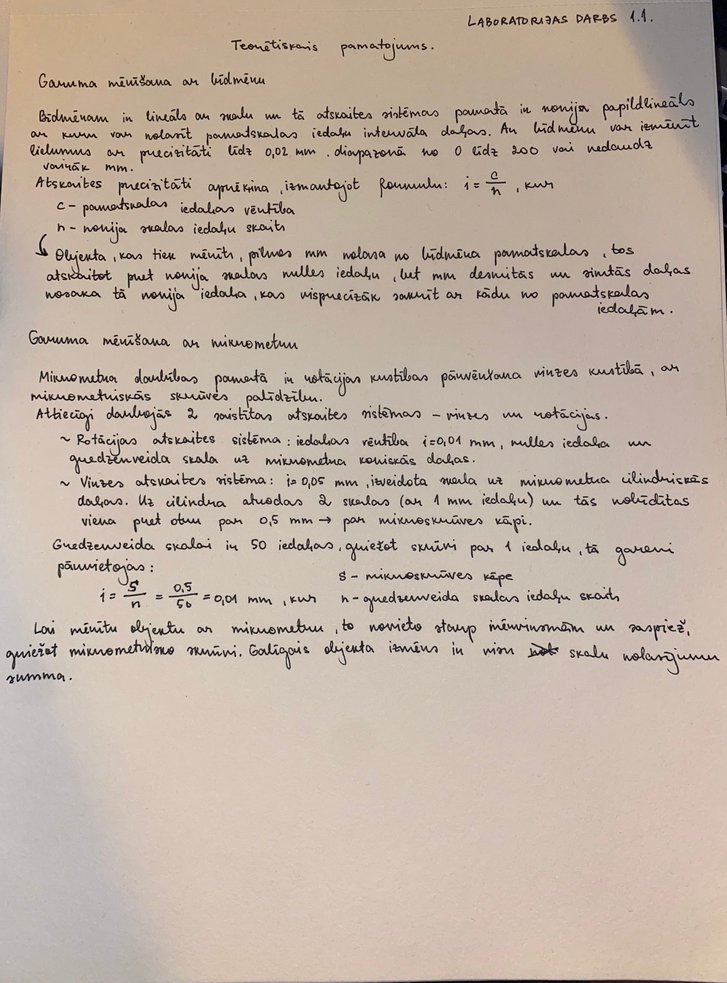 LABORATORIJAS DARBS 1.1.
Teorētiskais pamatojums.
Garuma mērīšana ar bīdmēru
Bīdmēram ir lineāls ar skalu un tā atskaites sistēmas pamatā ir nonija papildlineāls
ar kuru var nolasīt pamatskalas iedaļu intervāla daļas. Ar bīdmēru var izmērīt
lielumus ar precizitāti līdz 0,02 mm. diapazonā no 0 līdz 200 vai nedaudz
vairāk mm.
Atskaites precizitāti aprēķina, izmantojot formulu: i = c/n , kur
c - pamatskalas iedaļas vērtība
n - nonija skalas iedaļu skaits
Objekta, kas tiek mērīts, pilnos mm nolasa no bīdmēra pamatskalas, tos
atskaitot pret nonija skalas nulles iedaļu, bet mm desmitās un simtās daļas
nosaka tā nonija iedaļa, kas visprecīzāk sakrīt ar kādu no pamatskalas
iedaļām.
Garuma mērīšana ar mikrometru
Mikrometra darbības pamatā ir rotācijas kustības pārvēršana virzes kustībā, ar
mikrometriskās skrūves palīdzību.
Attiecīgi darbojās 2 saistītas atskaites sistēmas - virzes un rotācijas.
~ Rotācijas atskaites sistēma: iedaļas vērtība i=0,01 mm, nulles iedaļa un
gredzenveida skala uz mikrometra koniskās daļas.
~ Virzes atskaites sistēma: i=0,05 mm, izveidota skala uz mikrometra cilindriskās
daļas. Uz cilindra atrodas 2 skalas (ar 1 mm iedaļu) un tās nobīdītas
viena pret otru par 0,5 mm → par mikroskrūves kāpi.
Gredzenveida skalai ir 50 iedaļas, griežot skrūvi par 1 iedaļu, tā gareni
pārvietojas:
S - mikroskrūves kāpe
i = S/n = 0,5/50 = 0,01 mm , kur n - gredzenveida skalas iedaļu skaits
Lai mērītu objektu ar mikrometru, to novieto starp mērvirsmām un saspiež,
griežot mikrometrisko skrūvi. Galīgais objekta izmērs ir visu skalu nolasījumu
summa.